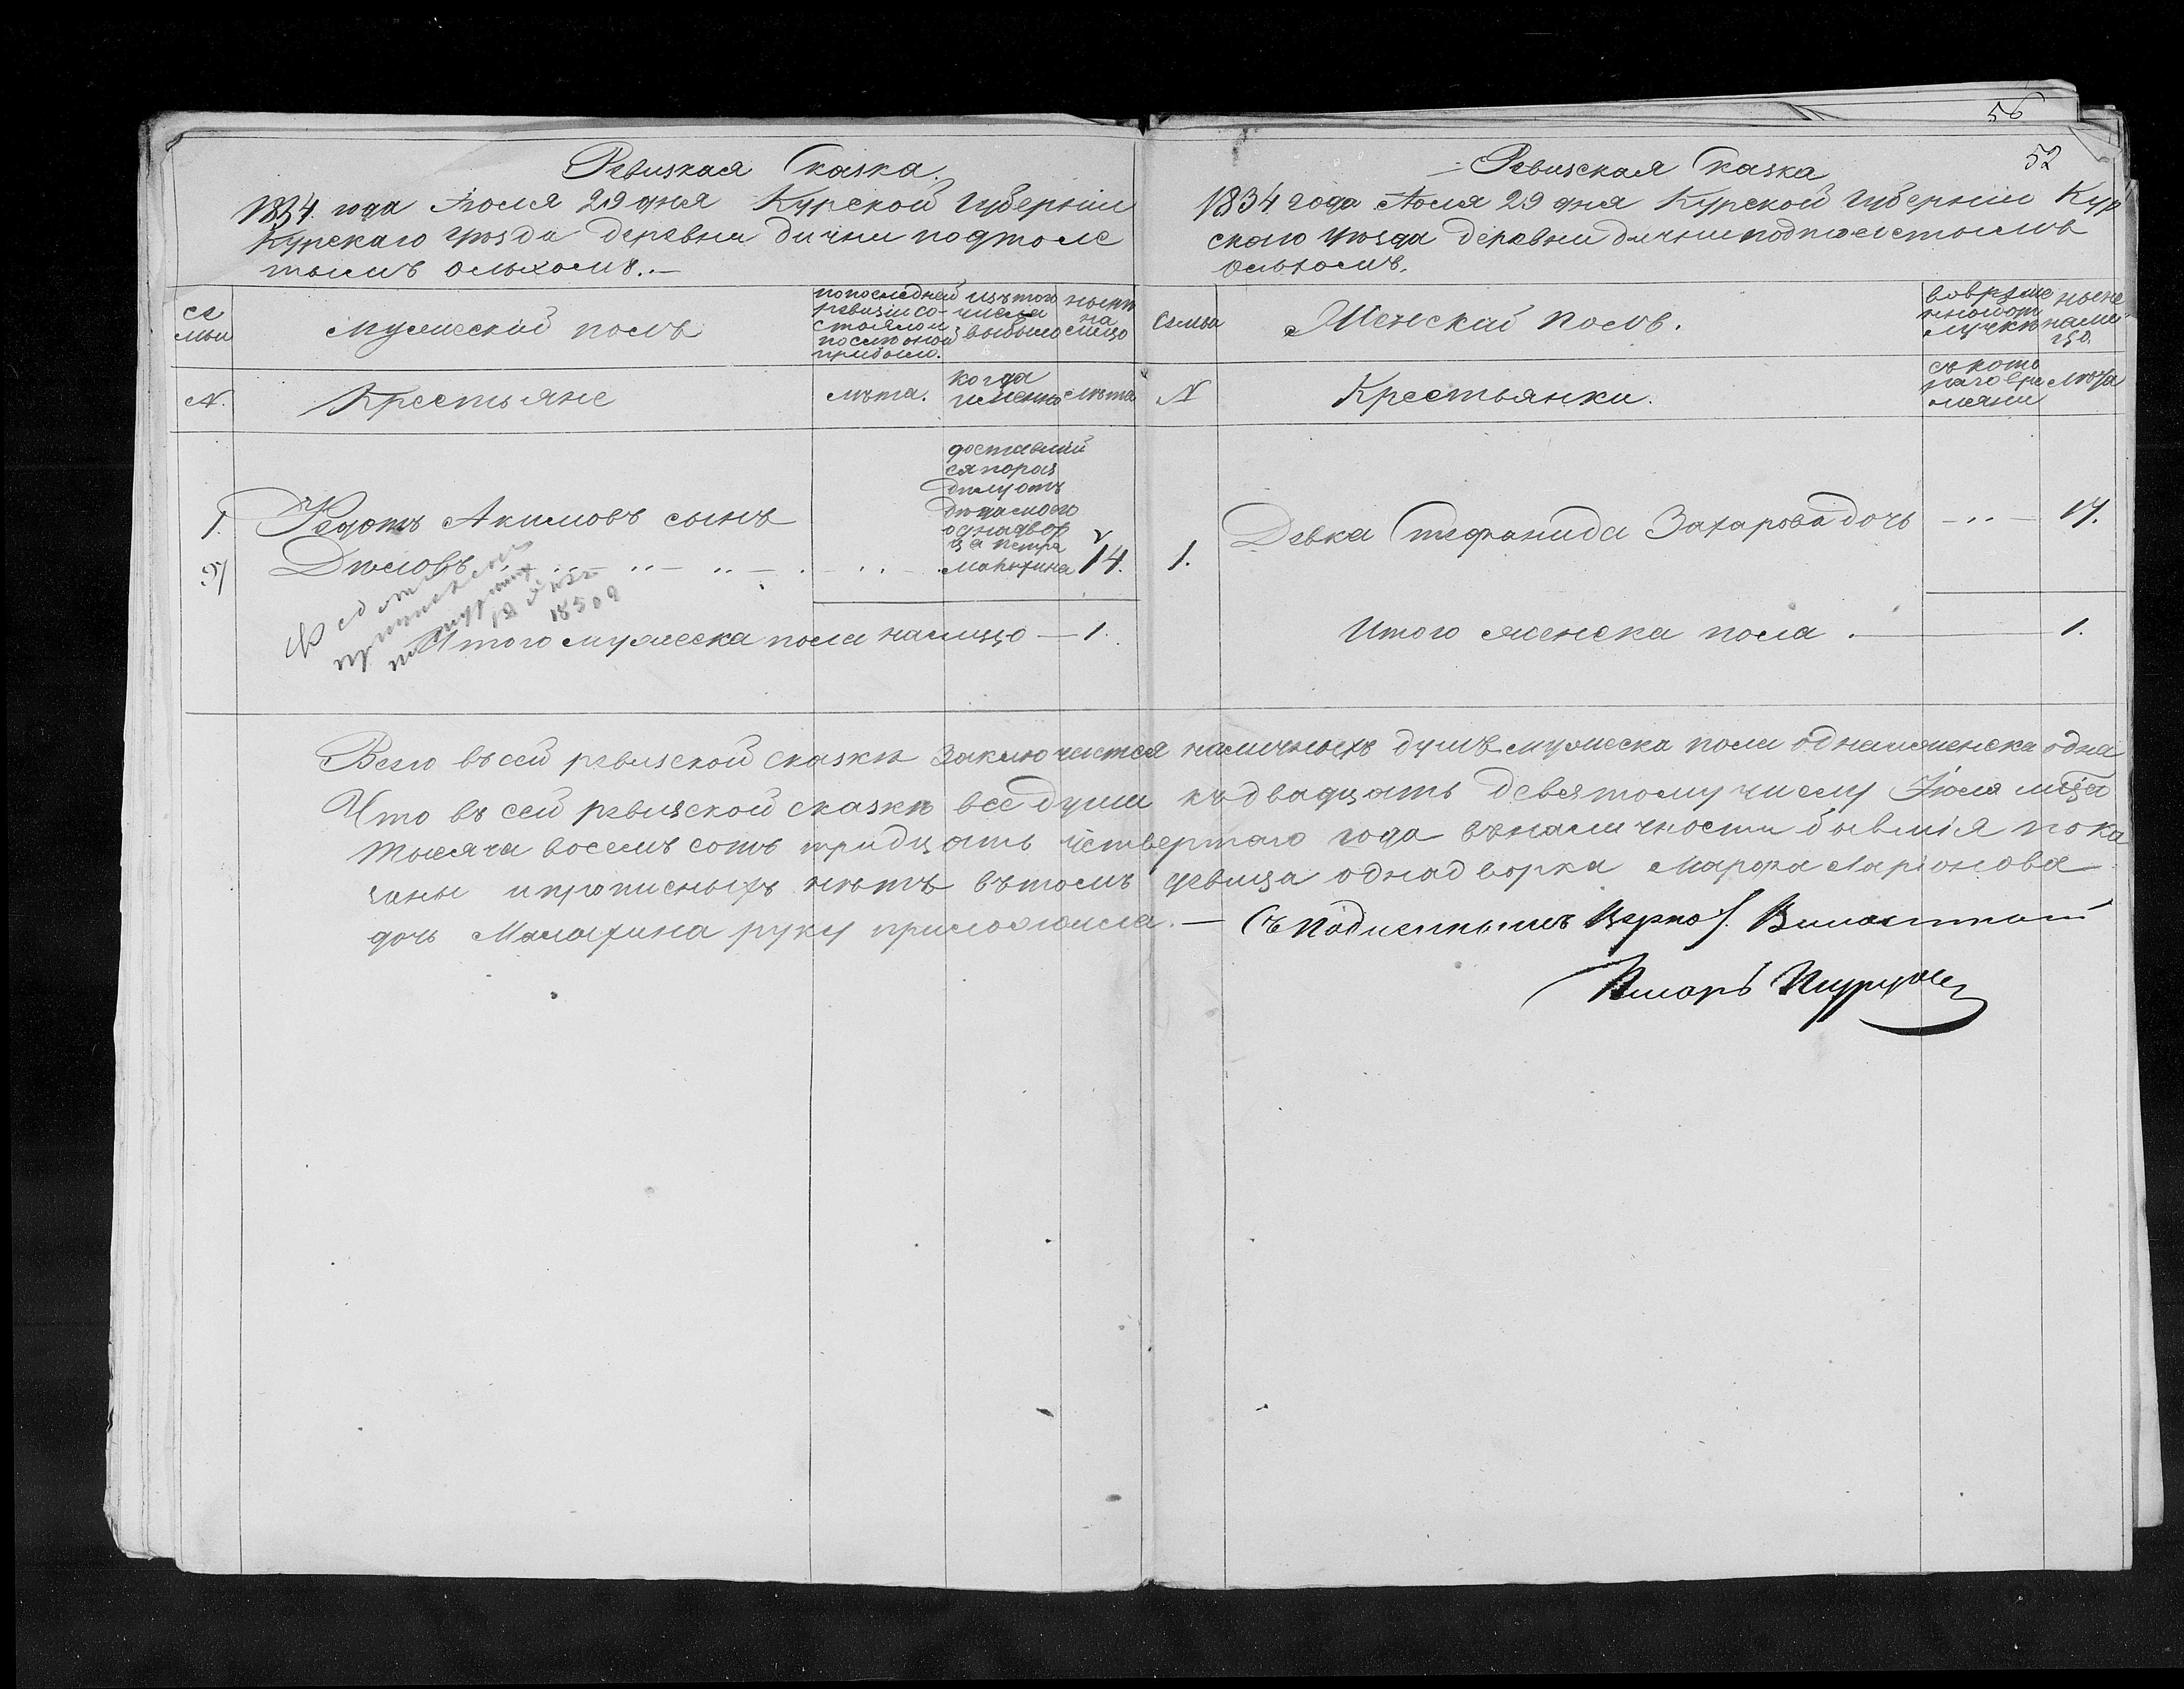 56
Ревизкая Сказка.
1834. года Июля 29 дня Курской губерніи
Курскаго уѣзда деревни Дични подтолс
тымъ ольхомъ.—
се
мьи
мужескій полъ
попоследней
ревизіи со-
стояло и
послѣ оной
прибыло.
изътого
числа
выбыло
нынѣ
на
лицо
N.
Крестьяне
лѣта.
когда
именно
лѣта
1.
Федотъ Акимовъ сынъ
Дѣловъ
доставшій
ся пораз
дѣлу отъ
дѣда моего
однадвор
ца Петра
Малыхина
14.
Федотъ
1850
Итого мужеска пола налицо — 1.
52
Ревизская Сказка
1834 года Июля 29 дня Курской губерніи Кур
скаго уѣзда деревни дични подтолстымъ
ольхомъ.
Семьи
Женскай полъ.
вовреме
нной от
лучкѣ
ныне
нали
цо.
N
Крестьянки.
съ кото
раго вре
мяни
лѣта
1.
Девка Стефанида Захарова дочь — 17.
Итого женска пола . — 1.
Всего въсей ревизской сказкѣ заключается наличныхъ душъ мужеска пола одна и женска одна
Что въ сей ревизской сказкѣ все души къдвадцать девятому числу Іюля мца
тысяча восемъ сотъ тридцать четвертаго года въналичности бывшія пока
заны ипрописныхъ нѣтъ вътомъ девица однадворка Марфа Ларіонова
дочь Малыхина руку приложила. — Съ подлиннымъ верно